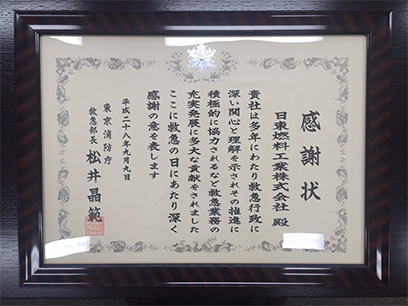 感謝状
日東燃料工業株式会社 殿
貴社は多年にわたり救急行政に
深い関心と理解を示されその推進に
積極的に協力されるなど救急業務の
充実発展に多大な貢献をされました
ここに救急の日にあたり深く
感謝の意を表します
平成二十八年九月九日
東京消防庁
救急部長 松井晶範